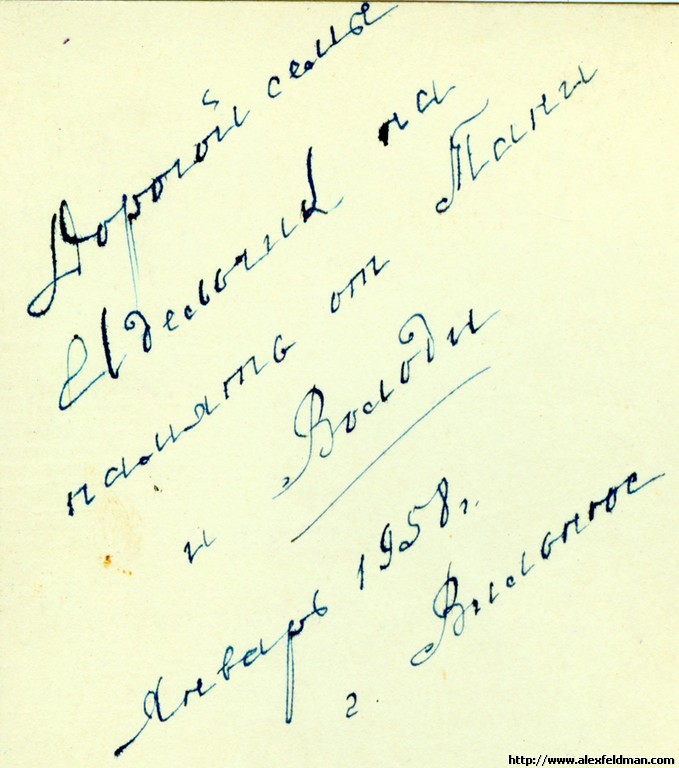 Дорогой семье
Идельчик на
память от Тани
и Володи
Январь 1958г.
г Вильнюс
http://www.alexfeldman.com